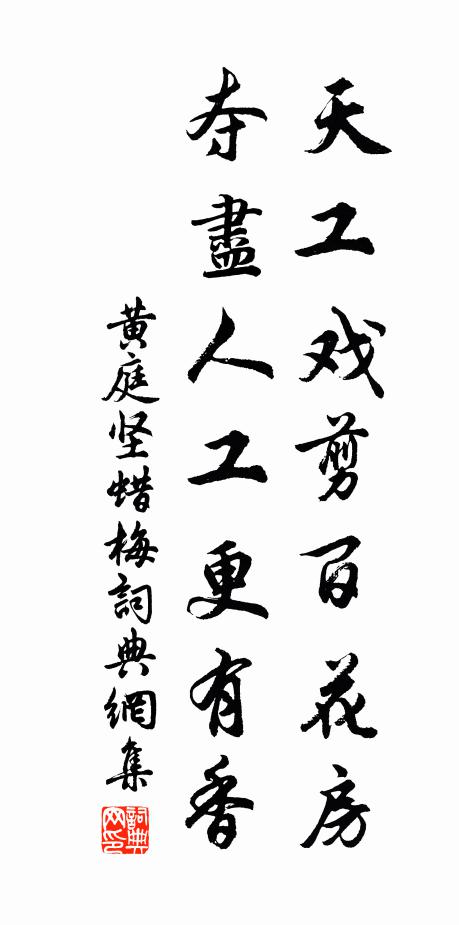 天工戏剪百花房
夺盡人工更有香
黄庭坚蜡梅詞典網集
詞典网印